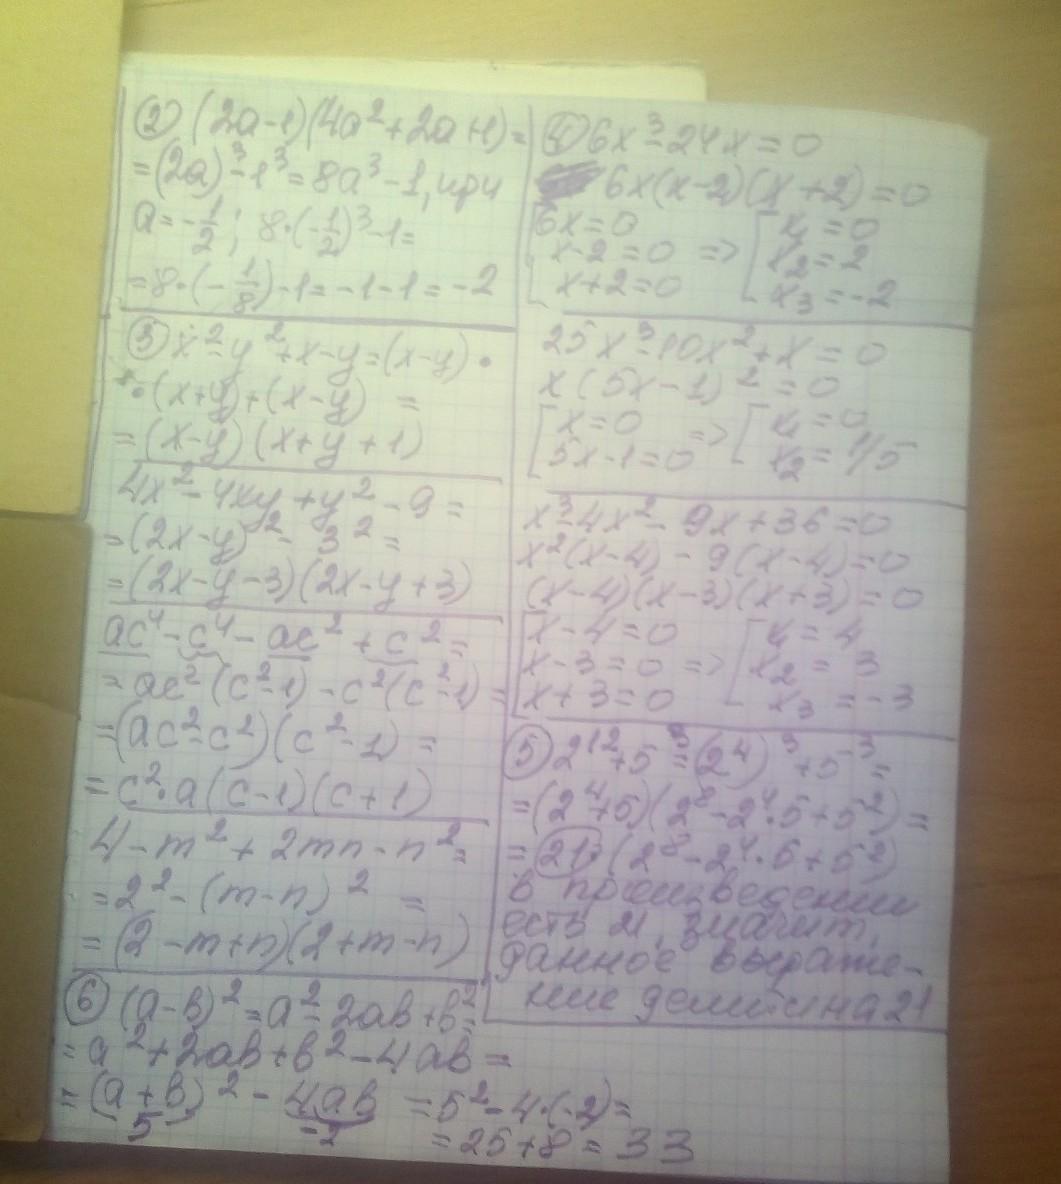 ② (2a-1)(4a²+2a+1)=
=(2a)³-1³=8a³-1, при
a=-1/2; 8·(-1/2)³-1=
=8·(-1/8)-1=-1-1=-2
③ x²-y²+x-y=(x-y)·
·(x+y)+(x-y) =
=(x-y)(x+y+1)
4x²-4xy+y²-9=
=(2x-y)²-3²=
=(2x-y-3)(2x-y+3)
ac⁴-c⁴-ac²+c²=
=ac²(c²-1)-c²(c²-1)=
=(ac²-c²)(c²-1)=
=c²·a(c-1)(c+1)
4-m²+2mn-n²=
=2²-(m-n)² =
=(2-m+n)(2+m-n)
④ 6x³-24x=0
6x(x-2)(x+2)=0
6x=0
x-2=0 => x₁=0
x+2=0
x₂=2
x₃=-2
25x³-10x²+x=0
x(5x-1)²=0
x=0 => x₁=0
5x-1=0 x₂=1/5
x³-4x²-9x+36=0
x²(x-4)-9(x-4)=0
(x-4)(x-3)(x+3)=0
x-4=0 x₁=4
x-3=0 => x₂=3
x+3=0 x₃=-3
⑤ 2¹²+5³=(2⁴)³+5³=
=(2⁴+5)(2⁸-2⁴·5+5²)=
=21·(2⁸-2⁴·5+5²)
в произведении
есть 21, значит,
данное выраже-
ние делится на 21
⑥ (a-b)²=a²-2ab+b²=
=a²+2ab+b²-4ab=
=(a+b)²-4ab =5²-4·(-2)=
5 -2 =25+8=33